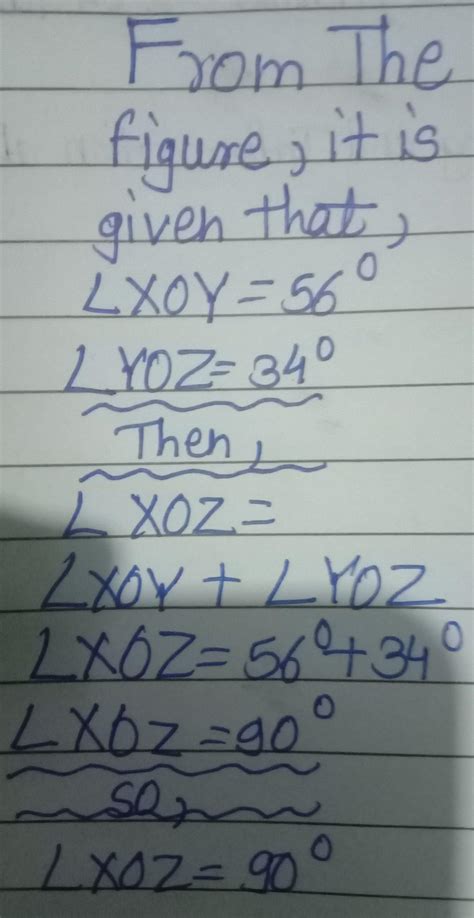 From The
figure, it is
given that,
∠XOY = 56°
∠YOZ = 34°
Then,
∠XOZ =
∠XOY + ∠YOZ
∠XOZ = 56° + 34°
∠XOZ = 90°
so,
∠XOZ = 90°